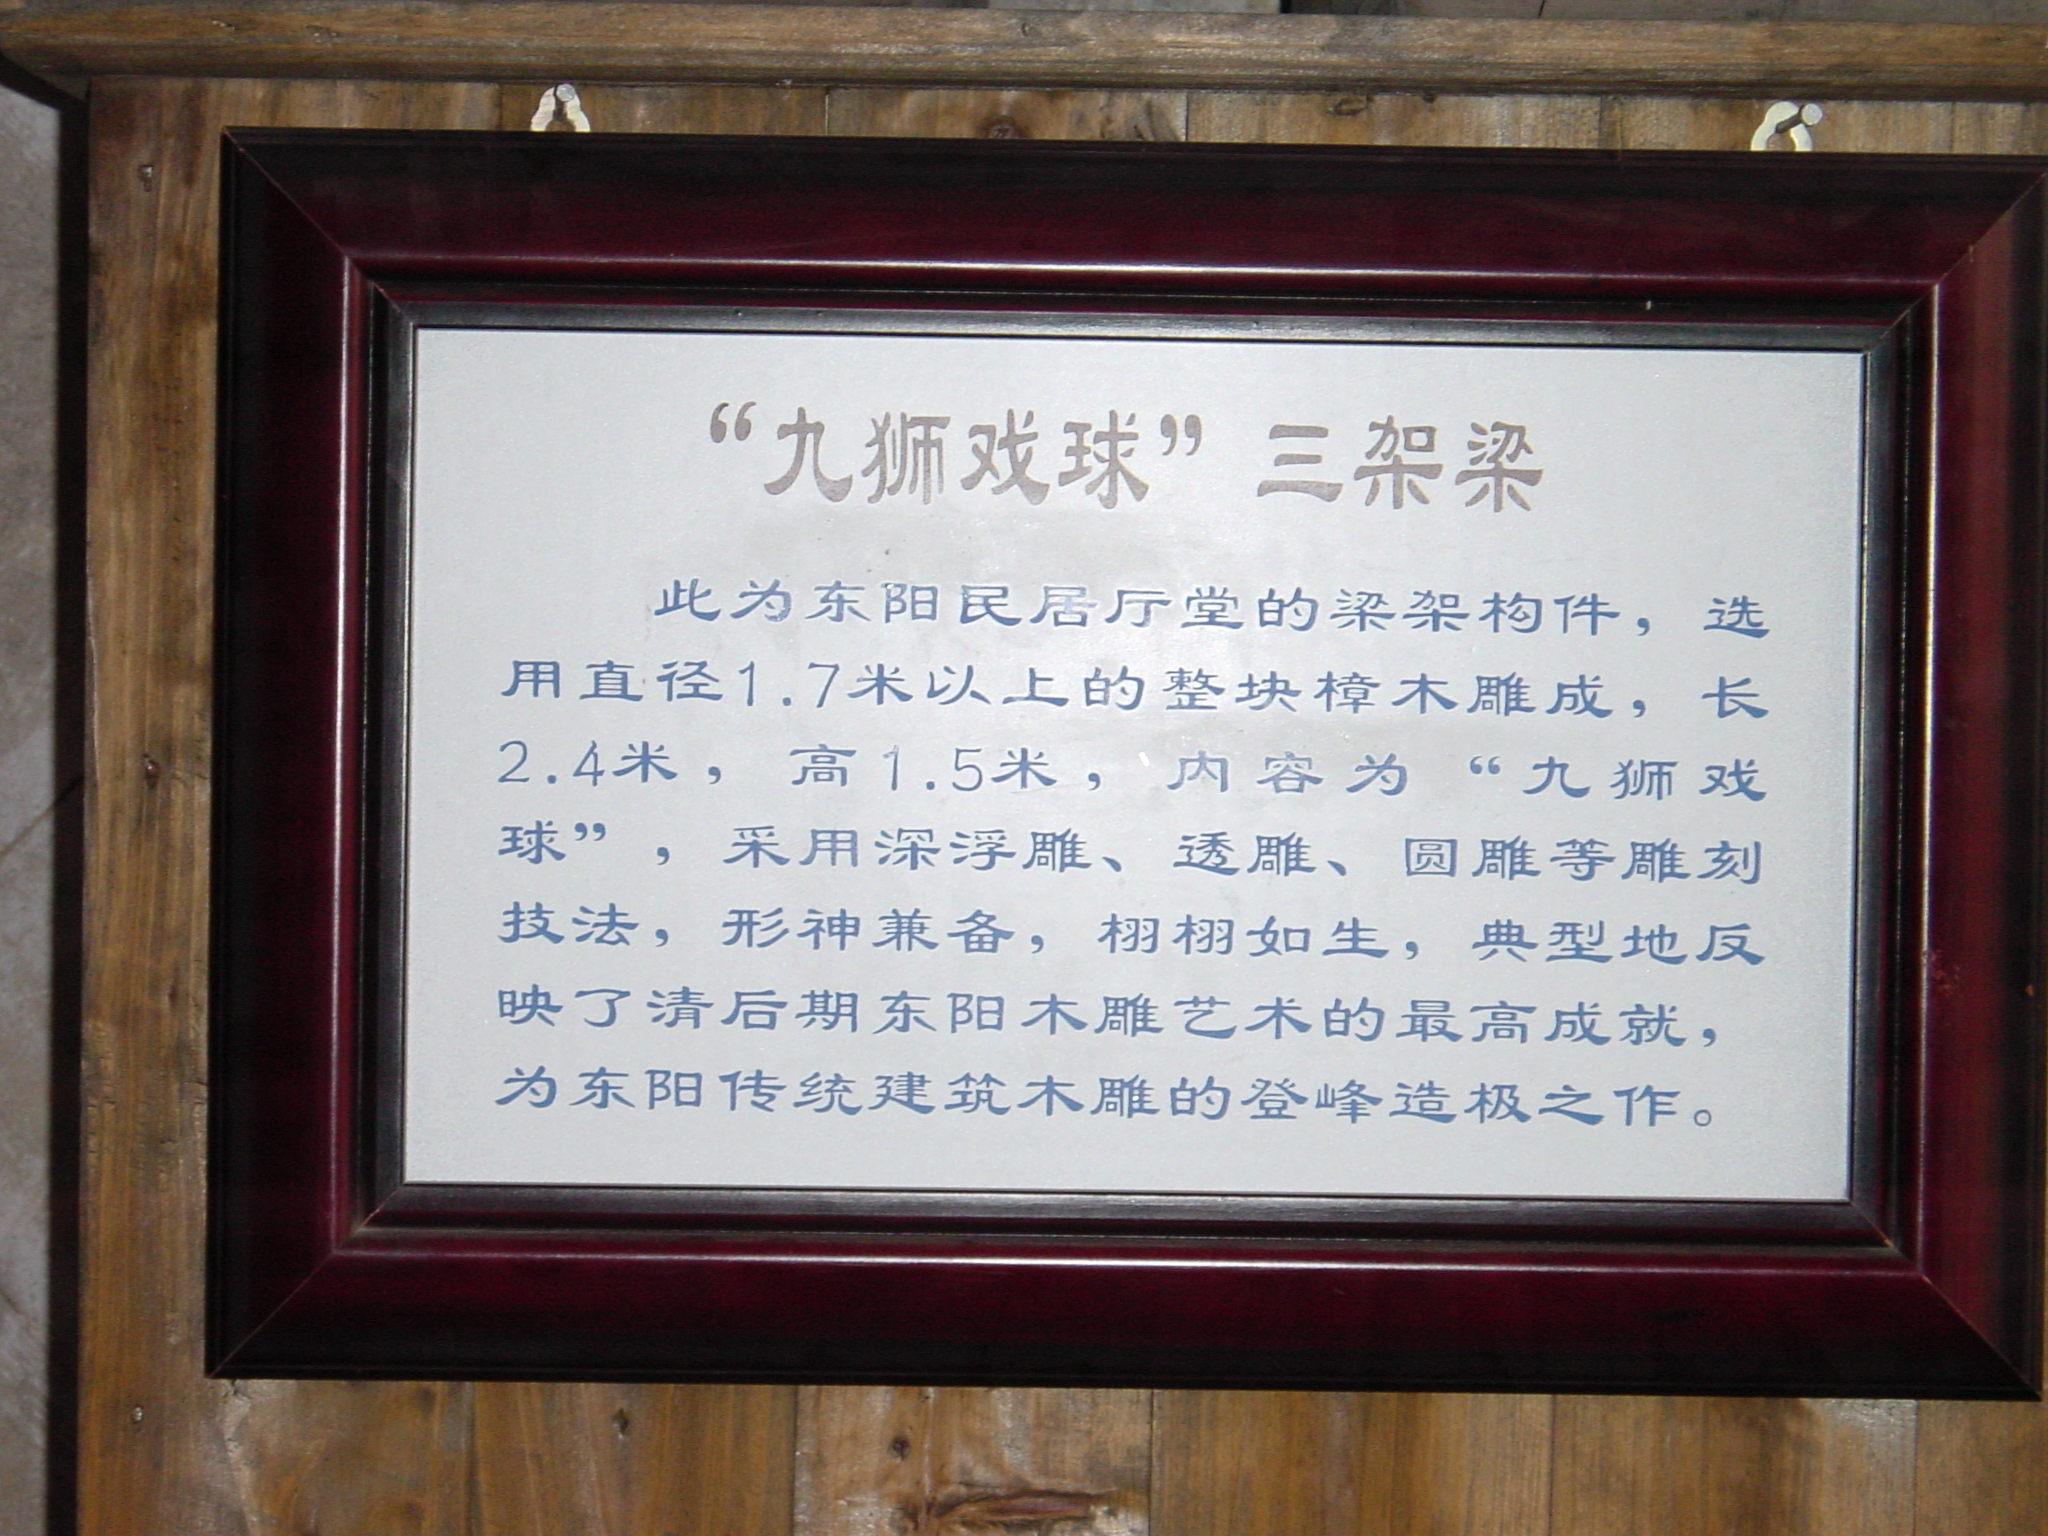 “九狮戏球”三架梁
此为东阳民居厅堂的梁架构件，选
用直径1.7米以上的整块樟木雕成，长
2.4米，高1.5米，内容为“九狮戏
球”，采用深浮雕、透雕、圆雕等雕刻
技法，形神兼备，栩栩如生，典型地反
映了清后期东阳木雕艺术的最高成就，
为东阳传统建筑木雕的登峰造极之作。